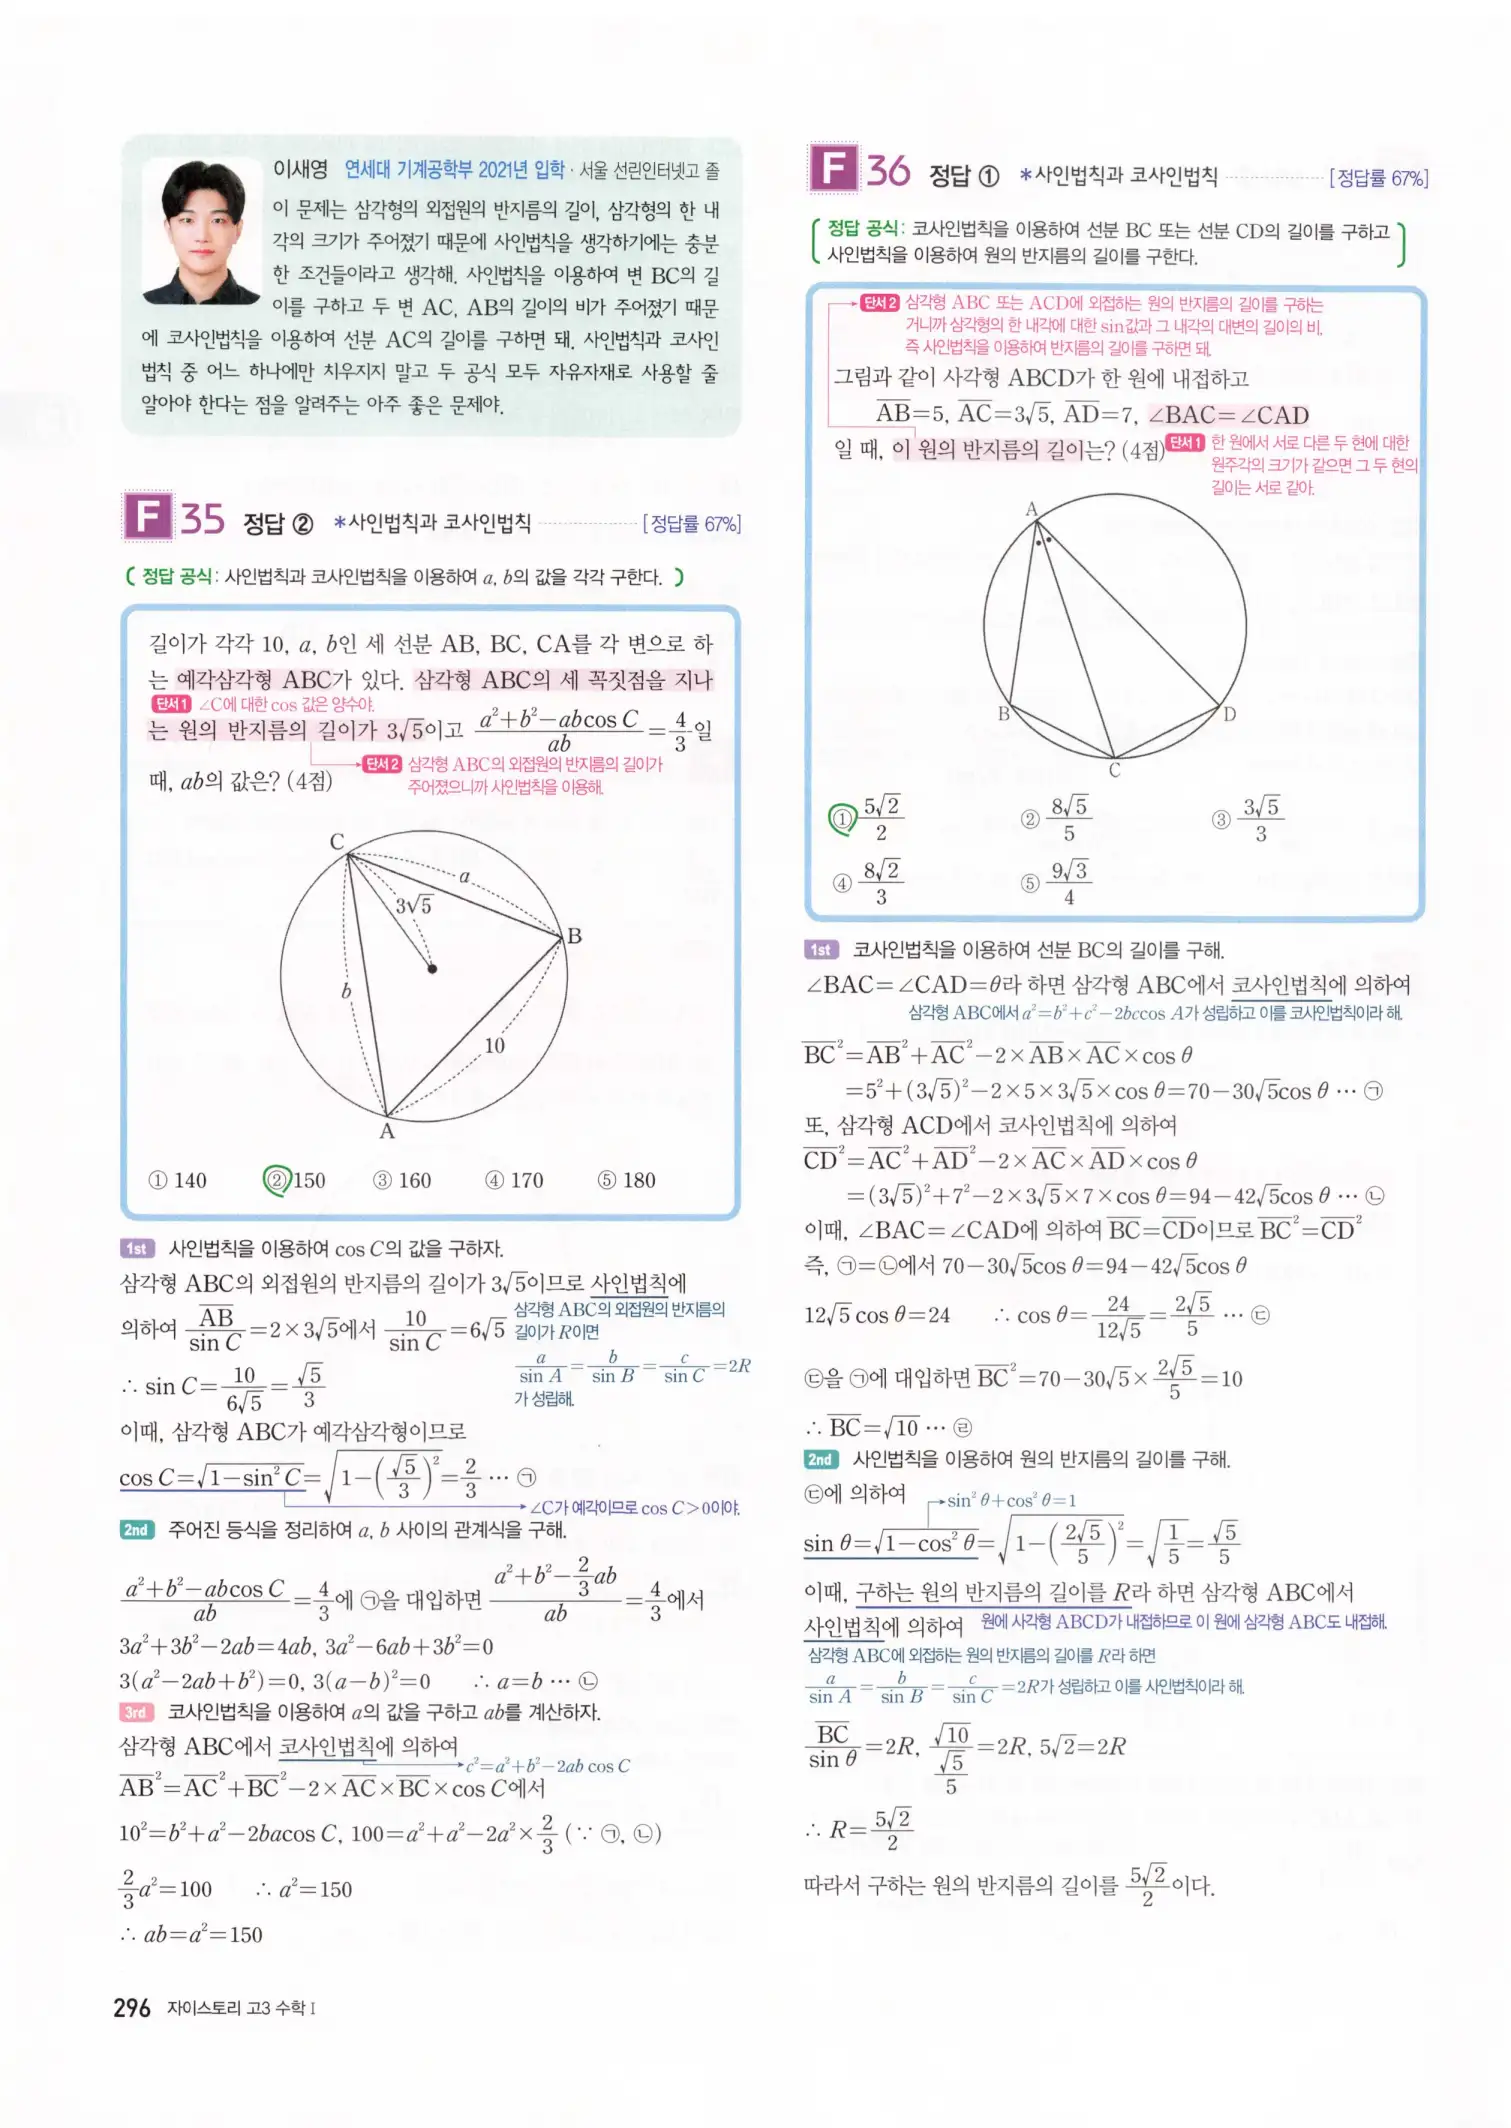 이새영 연세대 기계공학부 2021년 입학 · 서울 선린인터넷고 졸
이 문제는 삼각형의 외접원의 반지름의 길이, 삼각형의 한 내
각의 크기가 주어졌기 때문에 사인법칙을 생각하기에는 충분
한 조건들이라고 생각해. 사인법칙을 이용하여 변 BC의 길
이를 구하고 두 변 AC, AB의 길이의 비가 주어졌기 때문
에 코사인법칙을 이용하여 선분 AC의 길이를 구하면 돼. 사인법칙과 코사인
법칙 중 어느 하나에만 치우지지 말고 두 공식 모두 자유자재로 사용할 줄
알아야 한다는 점을 알려주는 아주 좋은 문제야.
F 35 정답 ② *사인법칙과 코사인법칙 [정답률 67%]
( 정답 공식: 사인법칙과 코사인법칙을 이용하여 a, b의 값을 각각 구한다. )
길이가 각각 10, a, b인 세 선분 AB, BC, CA를 각 변으로 하
는 예각삼각형 ABC가 있다. 삼각형 ABC의 세 꼭짓점을 지나
단서1 ∠C에 대한 cos 값은 양수야.
는 원의 반지름의 길이가 3√5이고 (a²+b²−abcos C)/ab = 4/3일
때, ab의 값은? (4점)
단서2 삼각형 ABC의 외접원의 반지름의 길이가
주어졌으니까 사인법칙을 이용해.
C
a
3√5
B
b
10
A
① 140 ② 150 ③ 160 ④ 170 ⑤ 180
1st 사인법칙을 이용하여 cos C의 값을 구하자.
삼각형 ABC의 외접원의 반지름의 길이가 3√5이므로 사인법칙에
의하여 AB/sin C=2×3√5에서 10/sin C=6√5
삼각형 ABC의 외접원의 반지름의
길이가 R이면
a/sin A=b/sin B=c/sin C=2R
가 성립해.
∴ sin C=10/6√5=√5/3
이때, 삼각형 ABC가 예각삼각형이므로
cos C=√(1−sin² C)=√(1−(√5/3)²)=2/3 ⋯ ㉠
∠C가 예각이므로 cos C>0이야.
2nd 주어진 등식을 정리하여 a, b 사이의 관계식을 구해.
(a²+b²−abcos C)/ab=4/3에 ㉠을 대입하면 (a²+b²−2/3ab)/ab=4/3에서
3a²+3b²−2ab=4ab, 3a²−6ab+3b²=0
3(a²−2ab+b²)=0, 3(a−b)²=0 ∴ a=b ⋯ ㉡
3rd 코사인법칙을 이용하여 a의 값을 구하고 ab를 계산하자.
삼각형 ABC에서 코사인법칙에 의하여
c²=a²+b²−2ab cos C
AB²=AC²+BC²−2×AC×BC×cos C에서
10²=b²+a²−2bacos C, 100=a²+a²−2a²×2/3 (∵ ㉠, ㉡)
2/3a²=100 ∴ a²=150
∴ ab=a²=150
296 자이스토리 고3 수학 I
F 36 정답 ① *사인법칙과 코사인법칙 [정답률 67%]
( 정답 공식: 코사인법칙을 이용하여 선분 BC 또는 선분 CD의 길이를 구하고
사인법칙을 이용하여 원의 반지름의 길이를 구한다. )
단서2 삼각형 ABC 또는 ACD에 외접하는 원의 반지름의 길이를 구하는
거니까 삼각형의 한 내각에 대한 sin값과 그 내각의 대변의 길이의 비,
즉 사인법칙을 이용하여 반지름의 길이를 구하면 돼.
그림과 같이 사각형 ABCD가 한 원에 내접하고
AB=5, AC=3√5, AD=7, ∠BAC=∠CAD
일 때, 이 원의 반지름의 길이는? (4점)
단서1 한 원에서 서로 다른 두 현에 대한
원주각의 크기가 같으면 그 두 현의
길이는 서로 같아.
A
B
D
C
① 5√2/2 ② 8√5/5 ③ 3√5/3
④ 8√2/3 ⑤ 9√3/4
1st 코사인법칙을 이용하여 선분 BC의 길이를 구해.
∠BAC=∠CAD=θ라 하면 삼각형 ABC에서 코사인법칙에 의하여
삼각형 ABC에서 a²=b²+c²−2bccos A가 성립하고 이를 코사인법칙이라 해.
BC²=AB²+AC²−2×AB×AC×cos θ
=5²+(3√5)²−2×5×3√5×cos θ=70−30√5cos θ ⋯ ㉠
또, 삼각형 ACD에서 코사인법칙에 의하여
CD²=AC²+AD²−2×AC×AD×cos θ
=(3√5)²+7²−2×3√5×7×cos θ=94−42√5cos θ ⋯ ㉡
이때, ∠BAC=∠CAD에 의하여 BC=CD이므로 BC²=CD²
즉, ㉠=㉡에서 70−30√5cos θ=94−42√5cos θ
12√5 cos θ=24 ∴ cos θ=24/12√5=2√5/5 ⋯ ㉢
㉢을 ㉠에 대입하면 BC²=70−30√5×2√5/5=10
∴ BC=√10 ⋯ ㉣
2nd 사인법칙을 이용하여 원의 반지름의 길이를 구해.
㉢에 의하여
sin² θ+cos² θ=1
sin θ=√(1−cos² θ)=√(1−(2√5/5)²)=√(1/5)=√5/5
이때, 구하는 원의 반지름의 길이를 R라 하면 삼각형 ABC에서
사인법칙에 의하여 원에 사각형 ABCD가 내접하므로 이 원에 삼각형 ABC도 내접해.
삼각형 ABC에 외접하는 원의 반지름의 길이를 R라 하면
a/sin A=b/sin B=c/sin C=2R가 성립하고 이를 사인법칙이라 해.
BC/sin θ=2R, √10/(√5/5)=2R, 5√2=2R
∴ R=5√2/2
따라서 구하는 원의 반지름의 길이를 5√2/2이다.